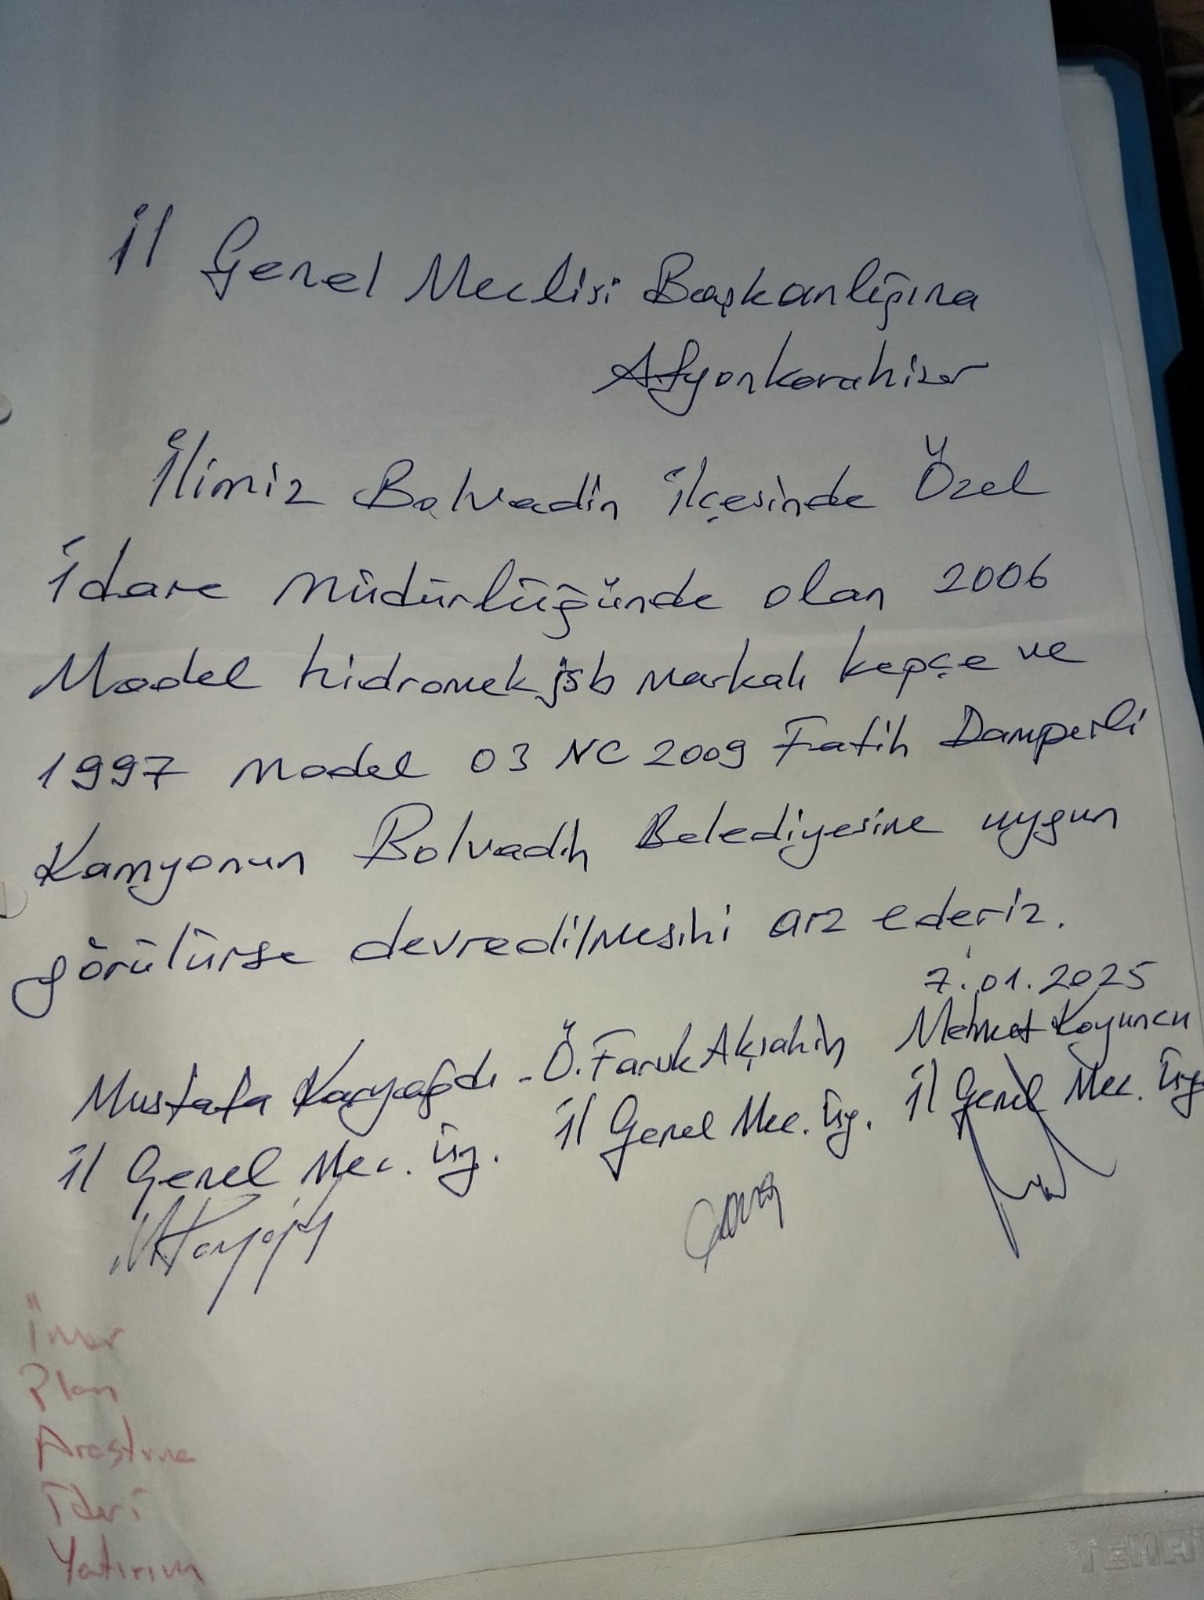 İl Genel Meclisi Başkanlığına
Afyonkarahisar
İlimiz Bolvadin ilçesinde Özel
İdare Müdürlüğünde olan 2006
Model hidromek jsb markalı kepçe ve
1997 model 03 NC 2009 Fatih Damperli
Kamyonun Bolvadin Belediyesine uygun
görülürse devredilmesini arz ederiz.
7.01.2025
Mustafa Karyağdı - Ö. Faruk Akşahin Mehmet Koyuncu
il Genel Mec. üy. il Genel Mec. üy. il Genel Mec. üy
İmar
Plan
Araştırma
İdari
Yatırım